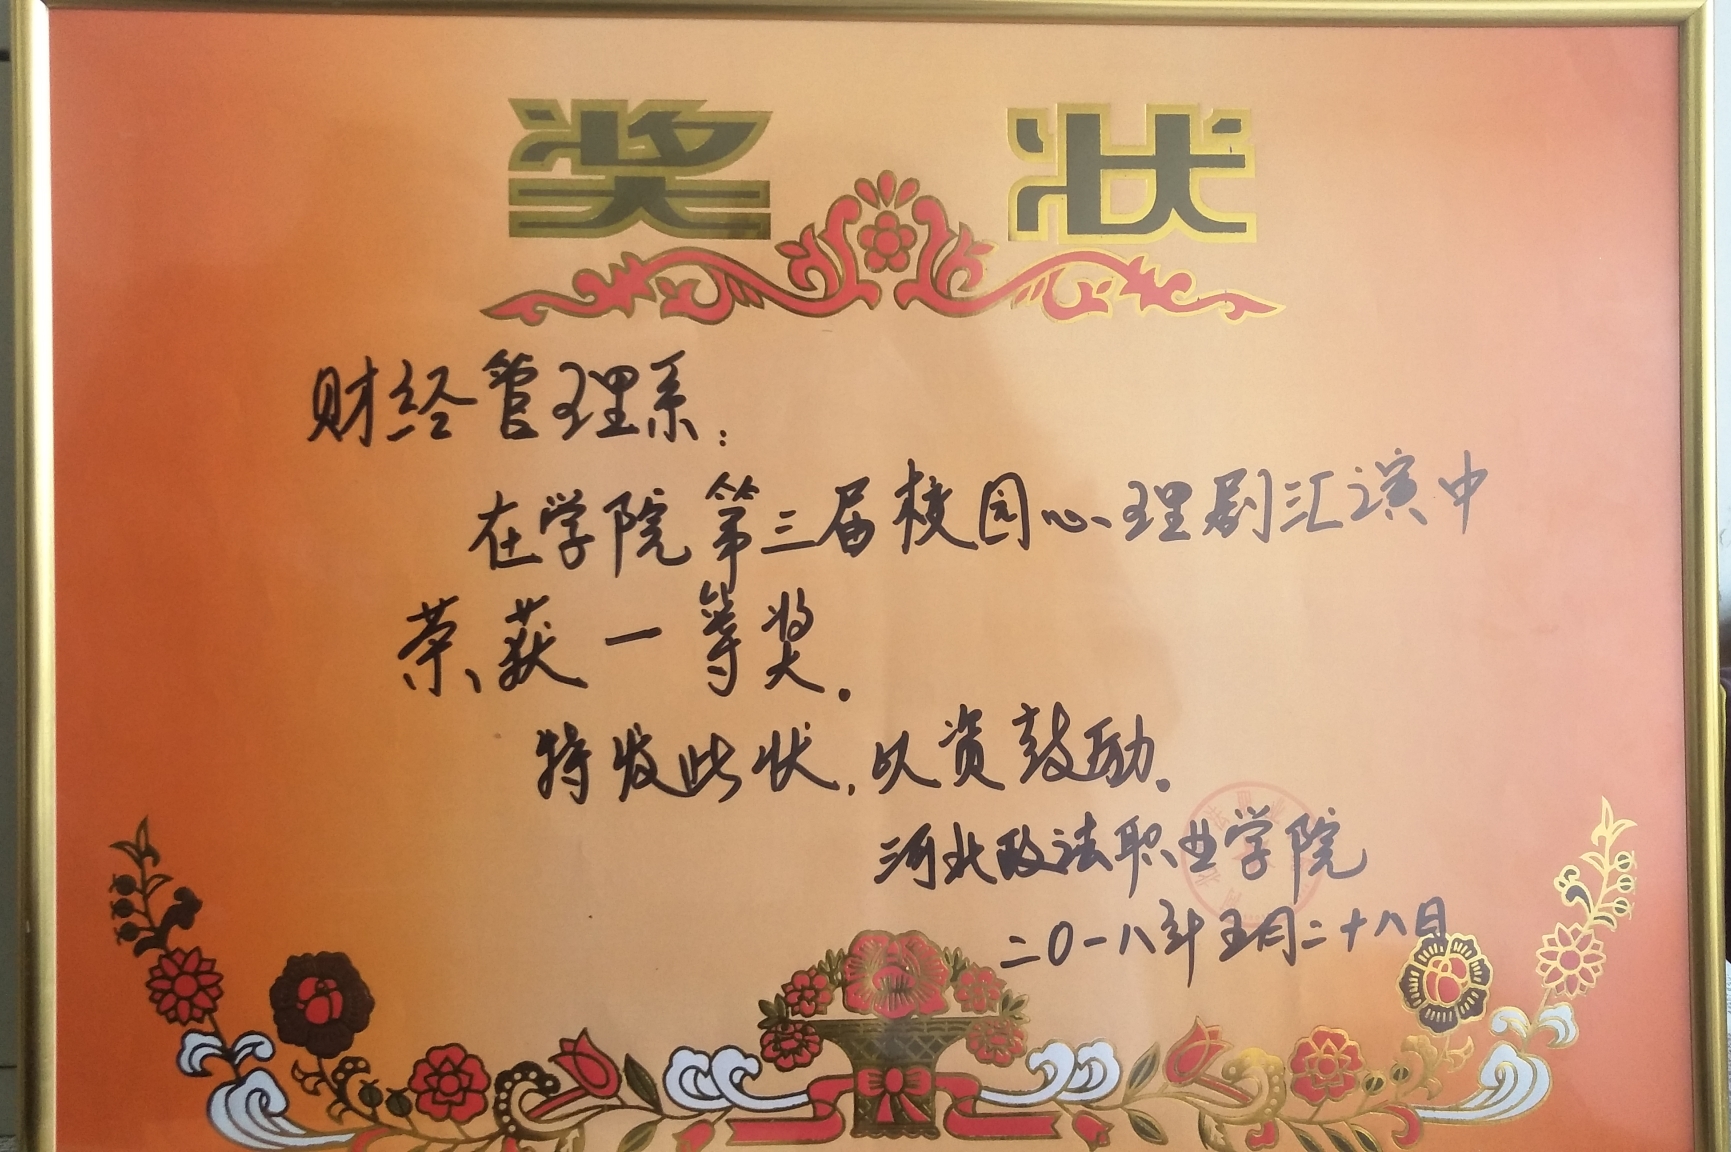 奖状
财经管理系：
在学院第三届校园心理剧汇演中
荣获一等奖.
特发此状,以资鼓励.
河北政法职业学院
二〇一八年五月二十八日